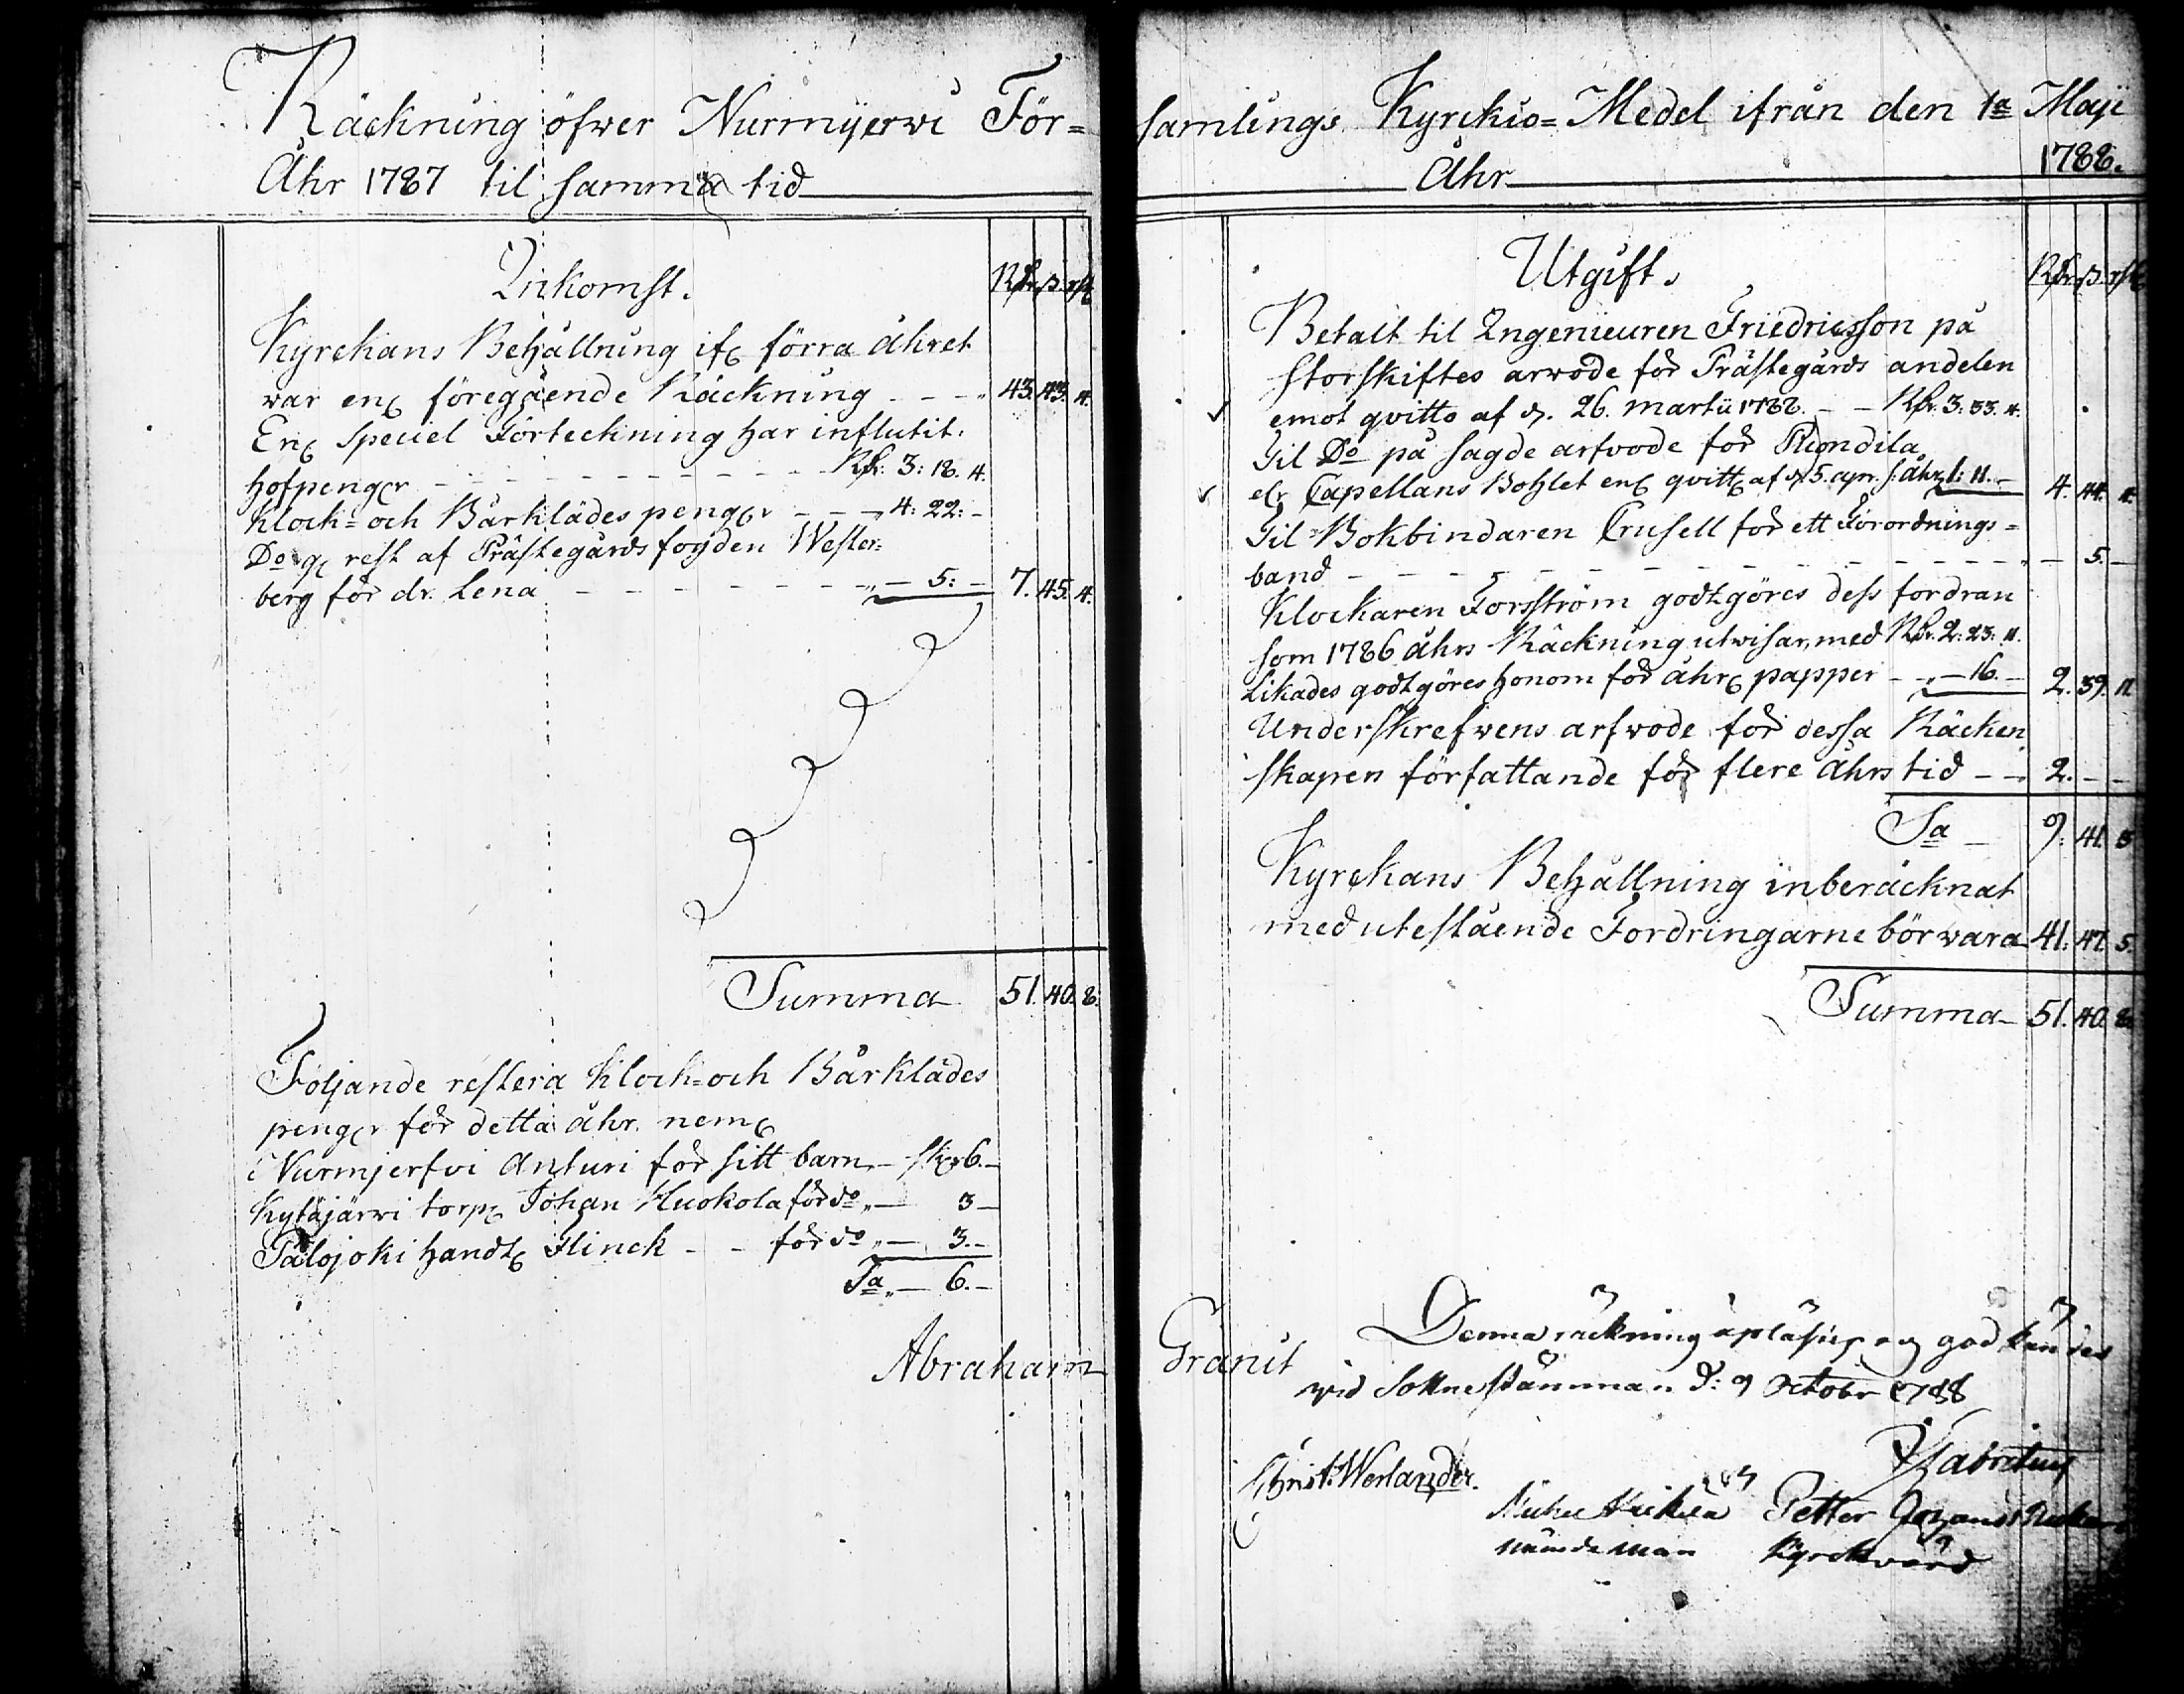 Räckning öfwer Nurmyerwi För=
Åhr 1787 til samma tid
Inkomst.
Rdr. ß. rst
Kyrckans Behållning ifr förra åhret
war enl föregående Räckning - - - 43. 43. 4.
Enl Speciel Förteckning har influtit.
Hofpengar - - - - - Rdr: 3: 18. 4.
Klock= och Bårklädes pengar - - - 4: 22: -
Do rest af Prästegårds fogden Wester=
berg för dr. Lena - - - - - 5: - 7. 45. 4.
Summa 51. 40. 8.
Följande restera Klock= och Bårklädes
pengar för detta åhr. neml
i Nurmjerfvi Anturi för sitt barn - sk 6. -
Kytäjärvi torp Johan Huokola för do „ - 3 -
Palojoki handtl Flinck - - för do „ - 3. -
Sa „ - 6. -
Abraham
samlings Kyrckio= Medel ifrån den 1a Maji
Åhr 1788.
Utgift.
Rdr. ß. rst
Betalt til Ingenieuren Friedricsson på
Storskiftes arwode för Prästegårds andelen
emot qvitto af d. 26. martii 1788. - - Rdr. 3. 33. 4.
Til Do på sagde arfvode för
elr Capellans Bohlet enl qvitt af d 5. apr. s. åhr 1: 11. - 4. 44. 4.
Til Bokbindaren Crusell för ett Förordnings=
band - - - - - - - 5. -
Klockaren Forsström godtgöres dess fordran
som 1786 åhrs Räckning utwisar, med Rdr. 2: 23: 11.
Likades godtgöres honom för åhrl papper - „ - 16. - 2. 39. 11
Underskrefwens arfwode för dessa Räcken
skapers författande för flere åhrs tid - - 2. - -
Sa - 9. 41. 3
Kyrckans Behållning inberäcknat
med utestående Fordringarne bör wara 41. 47. 5.
Summa - 51. 40. 8.
Granit
Denna räckning och godkändes
wid Sokne stämman d: 9 Octobr 1788
Christ. Werlander.
Petter
nämde man Kyrckvärd